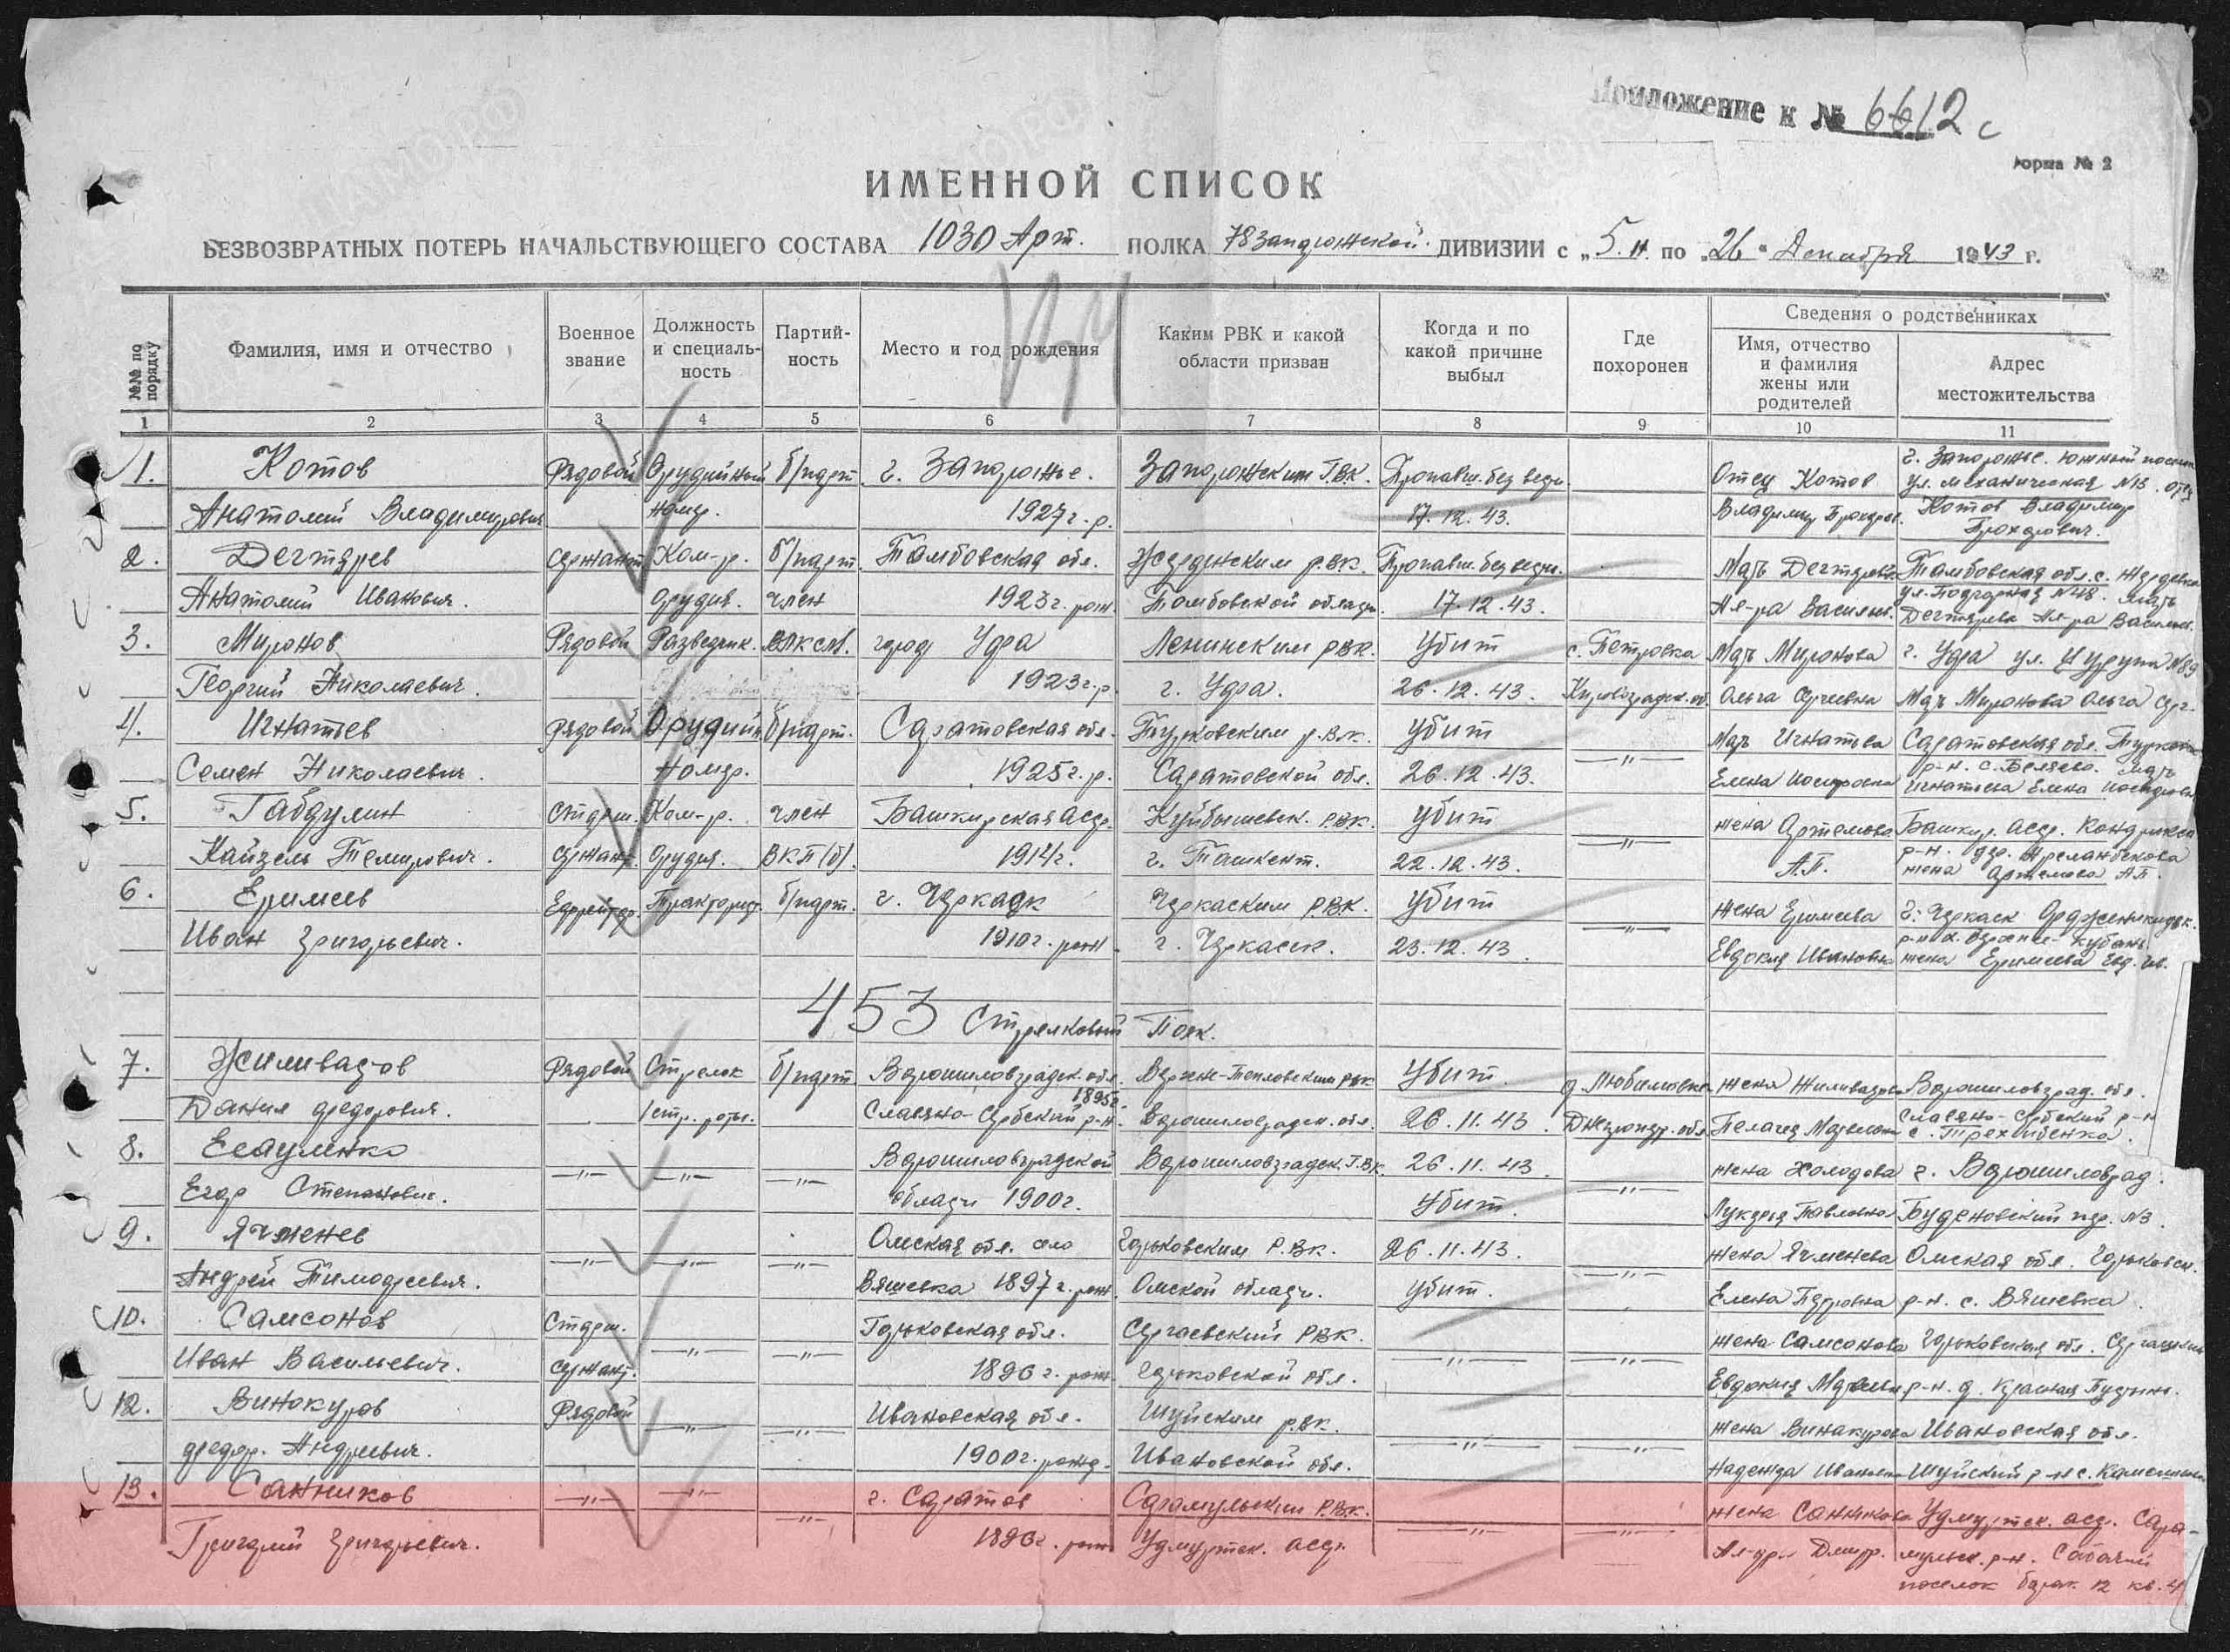 Приложение к № 6612 с
Форма № 2
ИМЕННОЙ СПИСОК
БЕЗВОЗВРАТНЫХ ПОТЕРЬ НАЧАЛЬСТВУЮЩЕГО СОСТАВА 1030 Арт. ПОЛКА 78 Запорожской ДИВИЗИИ с „5.И. по „26" Декабря 1943 г.
№№ по порядку
Фамилия, имя и отчество
Военное звание
Должность и специальность
Партийность
Место и год рождения
Каким РВК и какой области призван
Когда и по какой причине выбыл
Где похоронен
Сведения о родственниках
Имя, отчество и фамилия жены или родителей
Адрес местожительства
1 2 3 4 5 6 7 8 9 10 11
1. Котов Рядовой Орудийный б/парт. г. Запорожье. Запорожским Г.В.К. Пропавш. без вести Отец Котов г. Запорожье. Южный
ул. механическая №13. отец
Анатолий Владимирович номер. 1927 г. р. 17.12.43. Владимир Прохоров. Котов Владимир
Прохорович.
2. Дегтярев сержант Ком-р. б/парт. Тамбовская обл. Жердевским Р.В.К. Пропавш. без вести. Мать Дегтярева Тамбовская обл. с. Жердевка
Анатолий Иванович. орудия. член 1923 г. рож. Тамбовской области. 17.12.43. Ал-ра Васильев. Дегтярева Ал-ра Васильев.
3. Миронов Рядовой Разведчик. ВЛКСМ. город Уфа Ленинским РВК. Убит с. Петровка Мать Миронова г. Уфа ул. Цурупа №89
Георгий Николаевич. 1923 г. р. г. Уфа. 26.12.43. Кировоградск. об. Ольга Сергеевна Мать Миронова Ольга Серг.
4. Игнатьев Рядовой Орудийн б/парт. Саратовская обл. Турковским Р.В.К. Убит —"— Мать Игнатьева Саратовская обл. Турков
р-н. с. Беляево. Мать
Семен Николаевич. Номер. 1925 г. р. Саратовской обл. 26.12.43. Елена Игнатьева Елена
5. Габдулин Старш. Ком-р. член Башкирская Асср. Куйбышевск. РВК. Убит —"— жена Артемова Башкир. Асср.
Тимирович. сержант. орудия. ВКП(б). 1914 г. г. Ташкент. 22.12.43. А.П. жена Артемова А.П.
6. Еримеев Ефрейтор. Тракторист. б/парт. г. Черкаск Черкаским Р.В.К. Убит —"— жена Еримеева г. Черкаск Орджоникидзк.
Иван Григорьевич. 1910 г. рож. г. Черкасск. 23.12.43. Евдокия Ивановна жена Еримеева Евд. Ив.
453 Стрелковый Полк.
7. Жиливазов Рядовой Стрелок б/парт Ворошиловградск. обл. Верхне-Тепловским рвк Убит. д. Любимовка жена Жиливазова Ворошиловград. обл.
1895 г.
Данил Федорович. 1 стр. роты. Славяно-Сербский р-н. Ворошиловградск. обл. 26.11.43. Днепропетр. обл. Пелагея Славяно-Сербский р-н
с. Трехизбенка.
8. Есауленко —"— —"— —"— Ворошиловградской Ворошиловградск. Г.В.К. 26.11.43. —"— жена Холодова г. Ворошиловград.
Егор Степанович. области 1900 г. Убит. Лукерья Павловна Буденовский пер. №3.
9. Ячменев —"— —"— —"— Омская обл. село Горьковским Р.В.К. 26.11.43. —"— жена Ячменева Омская обл. Горьковск.
Андрей Тимофеевич. Вяшевка 1897 г. рож. Омской области. Убит. Елена Петровна р-н. с. Вяшевка.
10. Самсонов Старш. —"— —"— Горьковская обл. Сергачевский РВК. —"— —"— жена Самсонова Горьковская обл. Сергачский
Иван Васильевич. сержант. 1896 г. рож. Горьковской обл. Евдокия р-н. д. Красная
12. Винокуров Рядовой —"— —"— Ивановская обл. Шуйским рвк. —"— —"— жена Винакурова Ивановская обл.
Федор. Андреевич. 1900 г. рожд. Ивановской обл. Надежда Ивановн Шуйский р-н с.
13. Санников —"— —"— —"— г. Саратов Сарапульским Р.В.К. —"— —"— жена Санникова Удмуртск. асср. Сара-
Григорий Григорьевич. 1896 г. рож Удмуртск. асср. Ал-др. Дмитр. пульск. р-н.
поселок барак 12 кв. 4